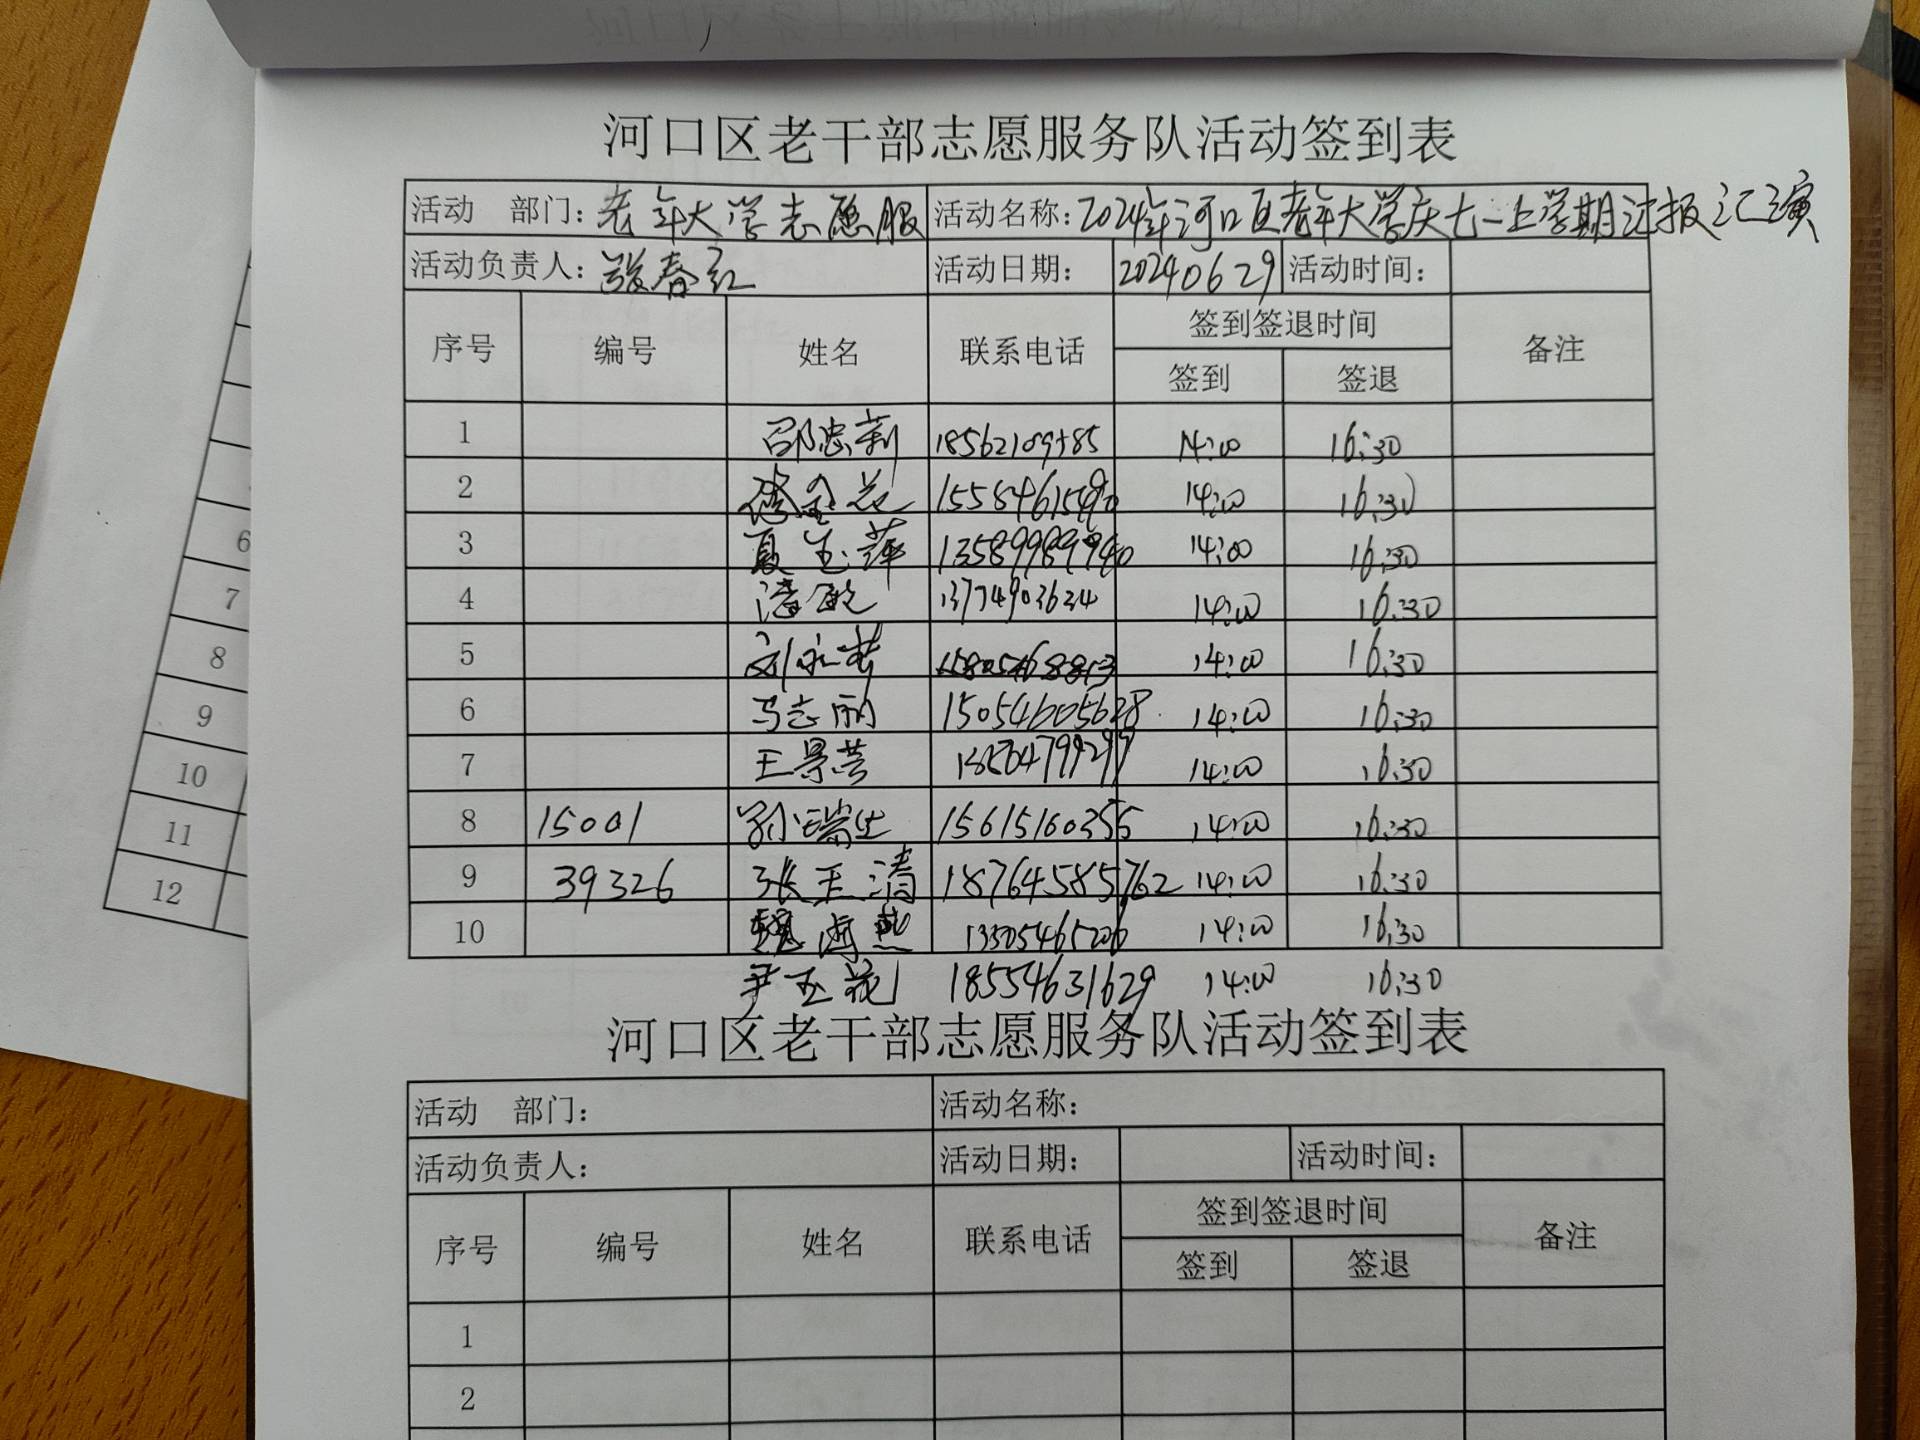 河口区老干部志愿服务队活动签到表
活动 部门：老年大学志愿服 活动名称：2024年河口区老年大学庆七一上学期汇报汇演
活动负责人：张春红 活动日期： 20240629 活动时间：
序号 编号 姓名 联系电话 签到签退时间 备注
签到 签退
1 邵忠莉 14:00 16:30
2 金花 14:00 16:30
3 夏玉萍 14:00 16:30
4 潘 14:00 16:30
5 刘 14:00 16:30
6 马志丽 15054605628 14:00 16:30
7 王景芸 14:00 16:30
8 15001 孙瑞生 15615160355 14:00 16:30
9 39326 张玉清 18764585762 14:00 16:30
10 魏海燕 13305465206 14:00 16:30
尹玉花 18554631629 14:00 16:30
河口区老干部志愿服务队活动签到表
活动 部门： 活动名称：
活动负责人： 活动日期： 活动时间：
序号 编号 姓名 联系电话 签到签退时间 备注
签到 签退
1
2
6
7
8
9
10
11
12